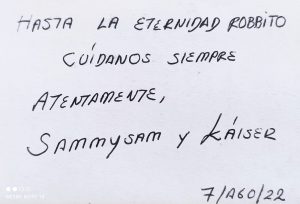 HASTA LA ETERNIDAD ROBBITO
CUÍDANOS SIEMPRE
ATENTAMENTE,
SAMMYSAM Y KÁISER
7/AGO/22